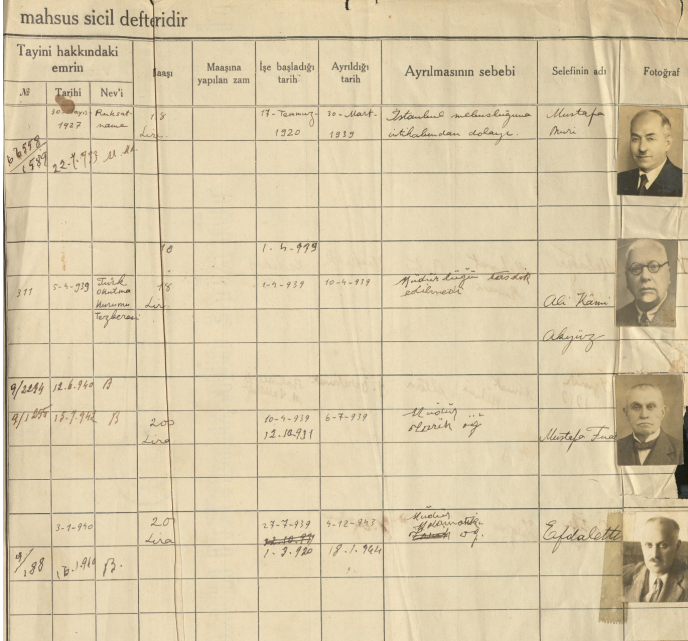 mahsus sicil defteridir
Tayini hakkındaki emrin
№ Tarihi Nev'i Maaşı Maaşına yapılan zam İşe başladığı tarih Ayrıldığı tarih Ayrılmasının sebebi Selefinin adı Fotoğraf
1927 Ruhsat-name 18 Lira 17-Temmuz-1920 30-Mart-1939 İstanbul mebusluğuna intihabından dolayı. Mustafa Nuri
66558/1589 22-7-933
10 1-4-939
311 5-4-939 Türk Okutma Kurumu Tezkeresi 18 Lir. 1-4-939 10-4-939 Müdürlüğü tasdik edilmedi Ali Kâmi Akyüz
9/2294 12.6.940 B
B 200 Lira 10-4-939 6-7-939 Müdür Mustafa Fua
12.10.931
3-1-940 20 Lira 27-7-939 4-12-943 Müdür Efdalettin
9/188 B. 1.3.920 18.1.944